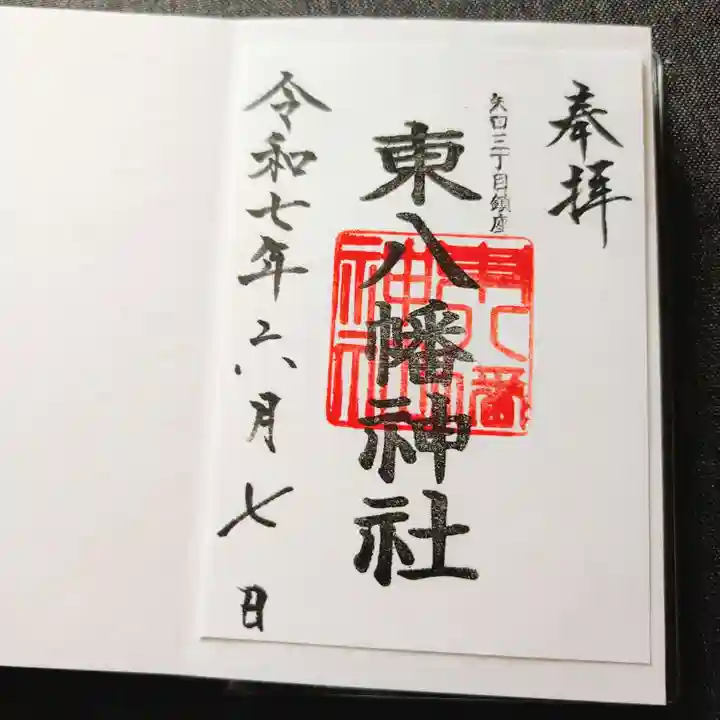 奉拝
矢口三丁目鎮座
東八幡神社
東八幡神社
令和七年六月七日